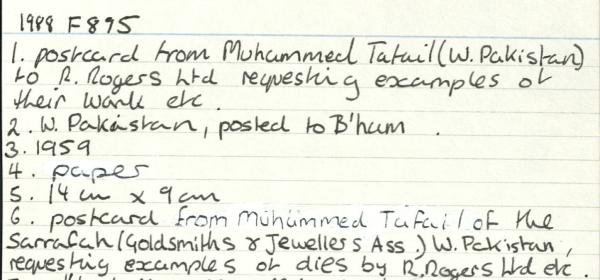 1988 F895
1. postcard from Muhammed Tafail (W. Pakistan)
to R. Rogers Ltd requesting examples of
their work etc.
2. W. Pakistan, posted to B'ham .
3. 1959
4. paper
5. 14 cm x 9 cm
6. postcard from Muhummed Tafail of the
Sarrafah (Goldsmiths & Jewellers Ass.) W. Pakistan,
requesting examples of dies by R. Rogers Ltd etc.